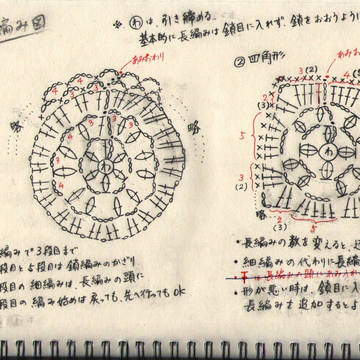 編み図
※ わ は、引き締める。
基本的に長編みは鎖目に入れず、鎖をおおうように
あみおわり
②四角形
あみおわり
3(2)
略
略
略
5
3
(2)
2
5
編みで3段目まで
段目と5段目は鎖編みのかぎり
段目の細編みは、長編みの頭に
段目の編み始めは戻っても、先へ行ってもOK
・長編みの数を変えると、
・細編みの代わりに長編
・形が悪い時は、鎖目に入
長編みを追加すると